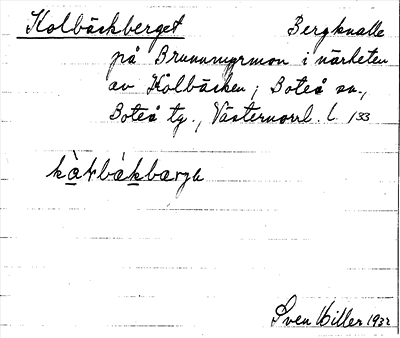 Kolbäckberget Bergknalle
på Brunnmyrmon i närheten
av Kolbäcken, Boteå sn.,
Boteå tg., Västernorrl. l. 133
Sven Hiller 1932